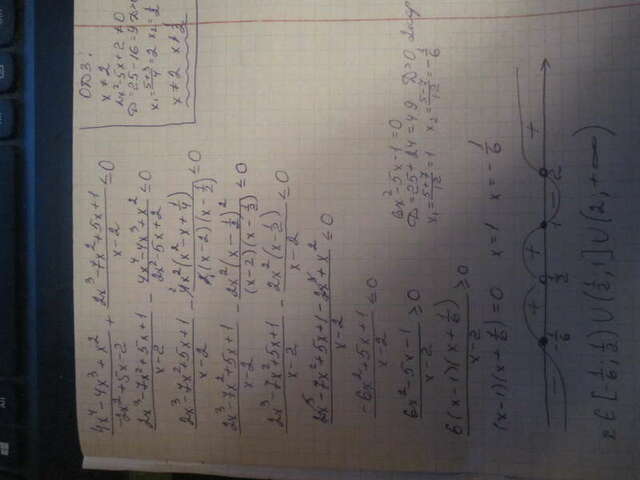 (4x⁴-4x³+x²)/(-2x²+5x-2) + (2x³-7x²+5x+1)/(x-2) ≤ 0
(2x³-7x²+5x+1)/(x-2) - (4x⁴-4x³+x²)/(2x²-5x+2) ≤ 0
(2x³-7x²+5x+1)/(x-2) - 4x²(x²-x+1/4)/(2(x-2)(x-1/2)) ≤ 0
(2x³-7x²+5x+1)/(x-2) - 2x²(x-1/2)²/((x-2)(x-1/2)) ≤ 0
(2x³-7x²+5x+1)/(x-2) - 2x²(x-1/2)/(x-2) ≤ 0
(2x³-7x²+5x+1-2x³+x²)/(x-2) ≤ 0
(-6x²+5x+1)/(x-2) ≤ 0
(6x²-5x-1)/(x-2) ≥ 0
6(x-1)(x+1/6)/(x-2) ≥ 0
(x-1)(x+1/6)=0 x=1 x=-1/6
ОДЗ:
x≠2
2x²-5x+2≠0
D=25-16=9
x₁=(5+3)/4=2 x₂=1/2
x≠2 x≠1/2
6x²-5x-1=0
D=25+24=49 D>0
x₁=(5+7)/12=1 x₂=(5-7)/12=-1/6
- + + - +
-1/6 1/2 1 2
x∈[-1/6; 1/2)∪(1/2; 1]∪(2, +∞)